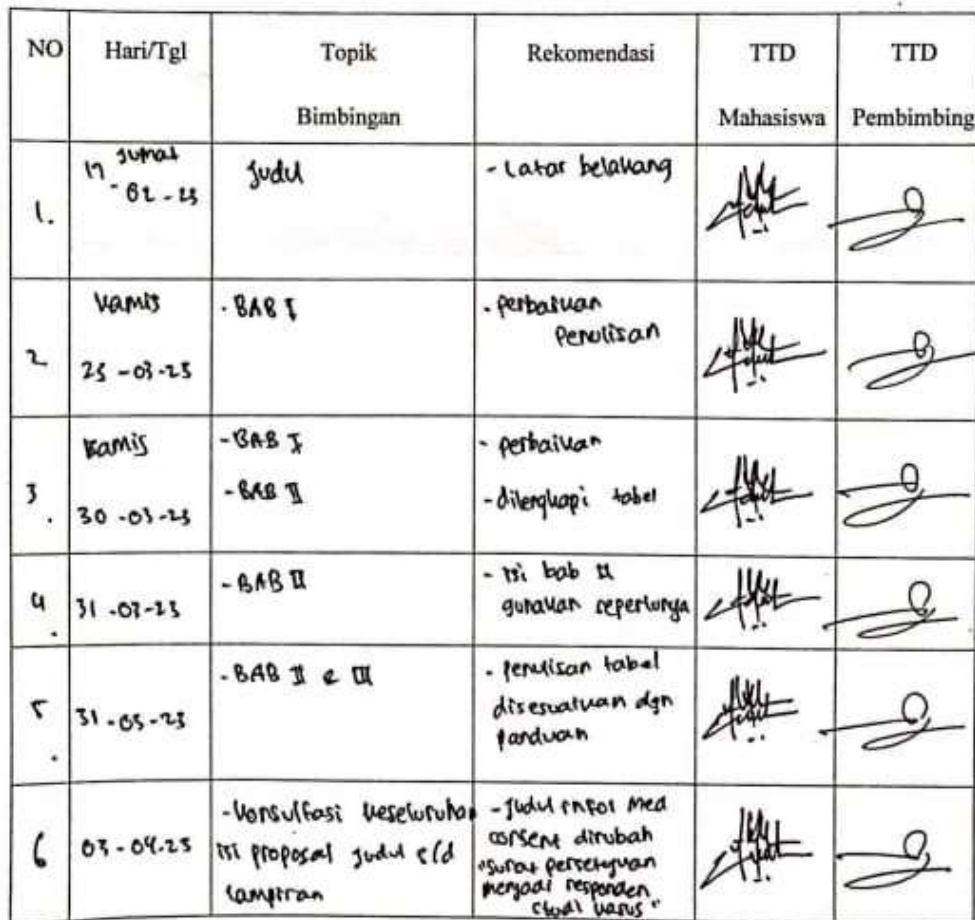 NO Hari/Tgl Topik Bimbingan Rekomendasi TTD Mahasiswa TTD Pembimbing
1. Jumat 17-02-23 Judul - Latar belakang
2 Kamis 23-03-23 - BAB I - perbaikan
Penulisan
3. Kamis 30-03-23 - BAB I - perbaikan
- BAB II - dilengkapi tabel
4. 31-03-23 - BAB II - isi bab II
gunakan seperlunya
5. 31-03-23 - BAB II & III - penulisan tabel
disesuaikan dgn
panduan
6 03-04-23 - Konsultasi keseluruhan
isi proposal judul s/d
lampiran
- Judul infor med
consent dirubah
"surat persetujuan
menjadi responden
studi kasus"